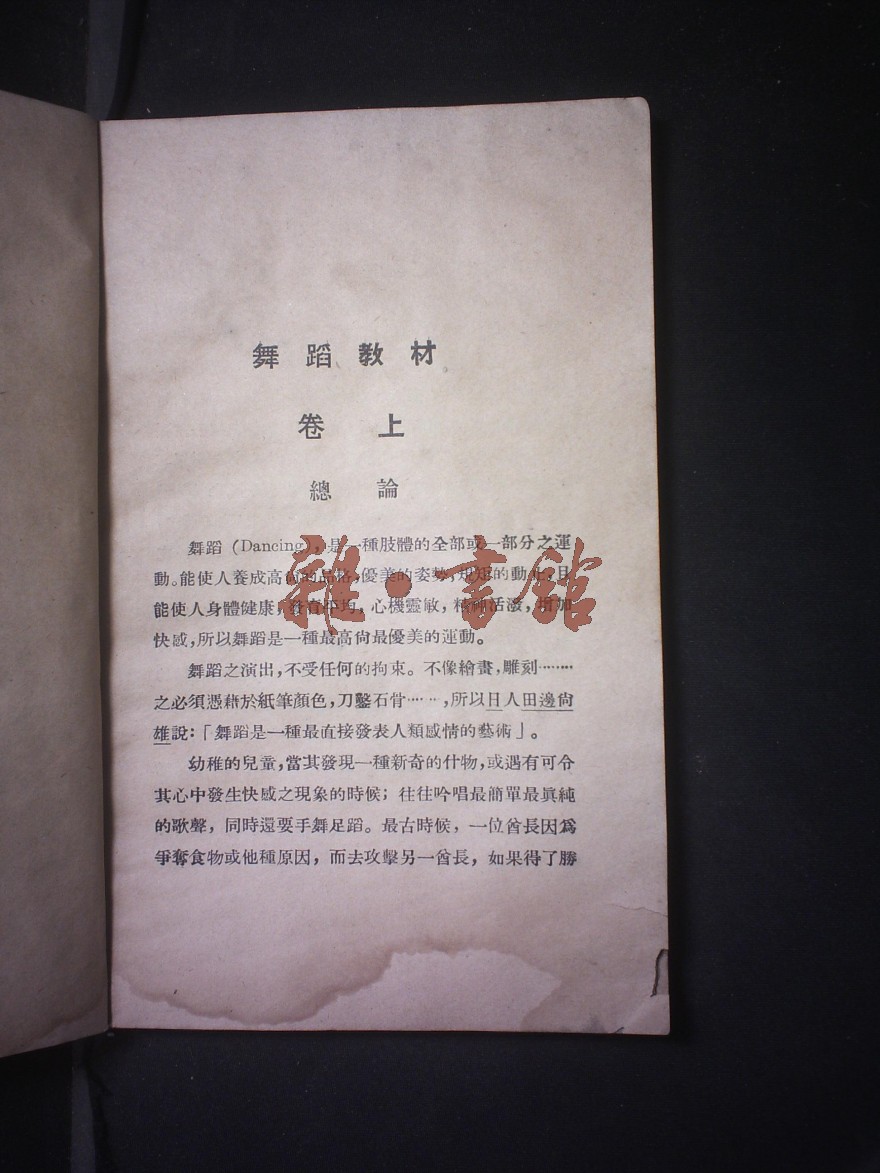 舞蹈教材
卷上
總論
舞蹈 (Dancing), 是一種肢體的全部或一部分之運
動。能使人養成高尙的品格,優美的姿勢,規矩的動作,且
能使人身體健康,發育平均,心機靈敏,精神活潑,增加
快感,所以舞蹈是一種最高尙最優美的運動。
舞蹈之演出,不受任何的拘束。不像繪畫,雕刻………
之必須憑藉於紙筆顏色,刀鑿石膏……,所以日人田邊尙
雄說:「舞蹈是一種最直接發表人類感情的藝術」。
幼稚的兒童,當其發現一種新奇的什物,或遇有可令
其心中發生快感之現象的時候;往往吟唱最簡單最眞純
的歌聲,同時還要手舞足蹈。最古時候,一位酋長因爲
爭奪食物或他種原因,而去攻擊另一酋長,如果得了勝
雜·書館